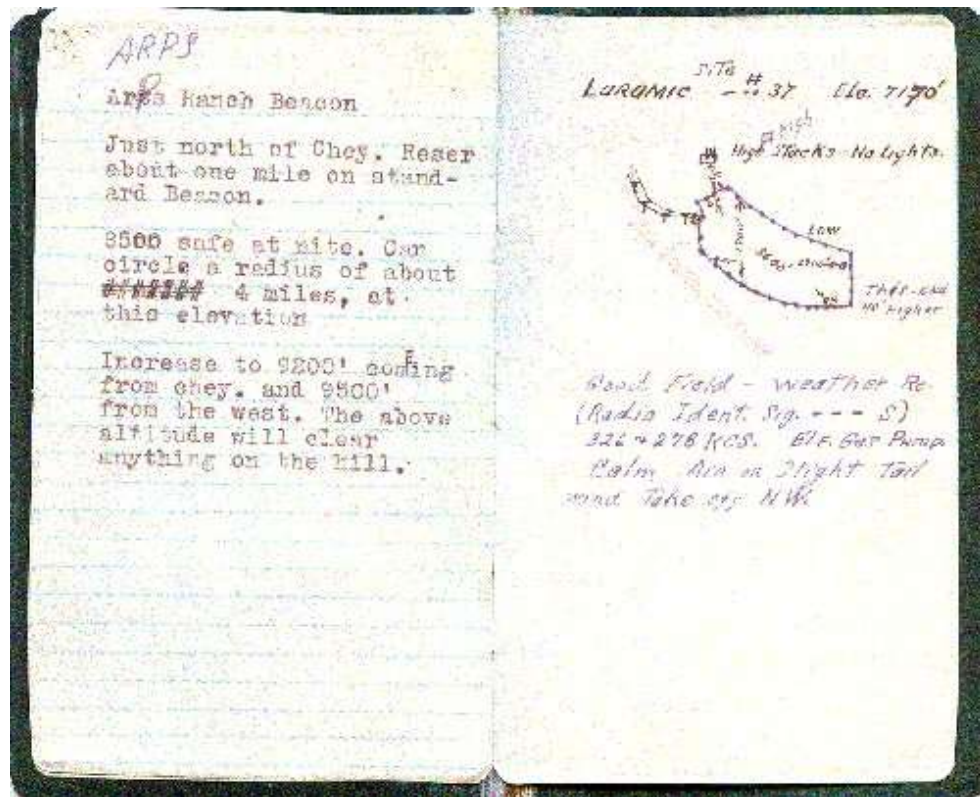 ARPS
Arps Ranch Beacon
Just north of Chey. Reser
about one mile on stand-
ard Beacon.
8500 safe at nite. Can
circle a radius of about
####### 4 miles, at
this elevation
Increase to 9200' coming
from chey. and 9500'
from the west. The above
altitude will clear
anything on the hill.
SITE
LARAMIE - # 37 Ele. 7170'
high
High Stacks - No Lights.
Low
This end
Higher
Good Field - Weather Re
(Radio Ident. Sig. - - - S)
326 278 KCS. Ele. Gas Pump
Calm Air or Slight Tail
wind Take off NW.